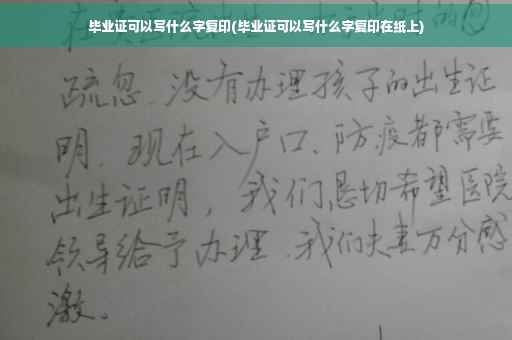 毕业证可以写什么字复印(毕业证可以写什么字复印在纸上)
疏忽、没有办理孩子的出生证
明、现在入户口、防疫都需要
出生证明，我们恳切希望医院
领导给予办理、我们夫妻万分感
激。